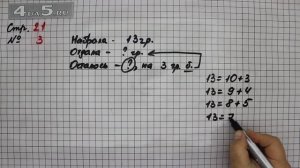 4du5.ru
Стр. 21
№ 3
Набрала - 13 гр.
Отдала - ? гр.
Осталось - ?, на 3 гр. б.
13 = 10 + 3
13 = 9 + 4
13 = 8 + 5
13 = 7